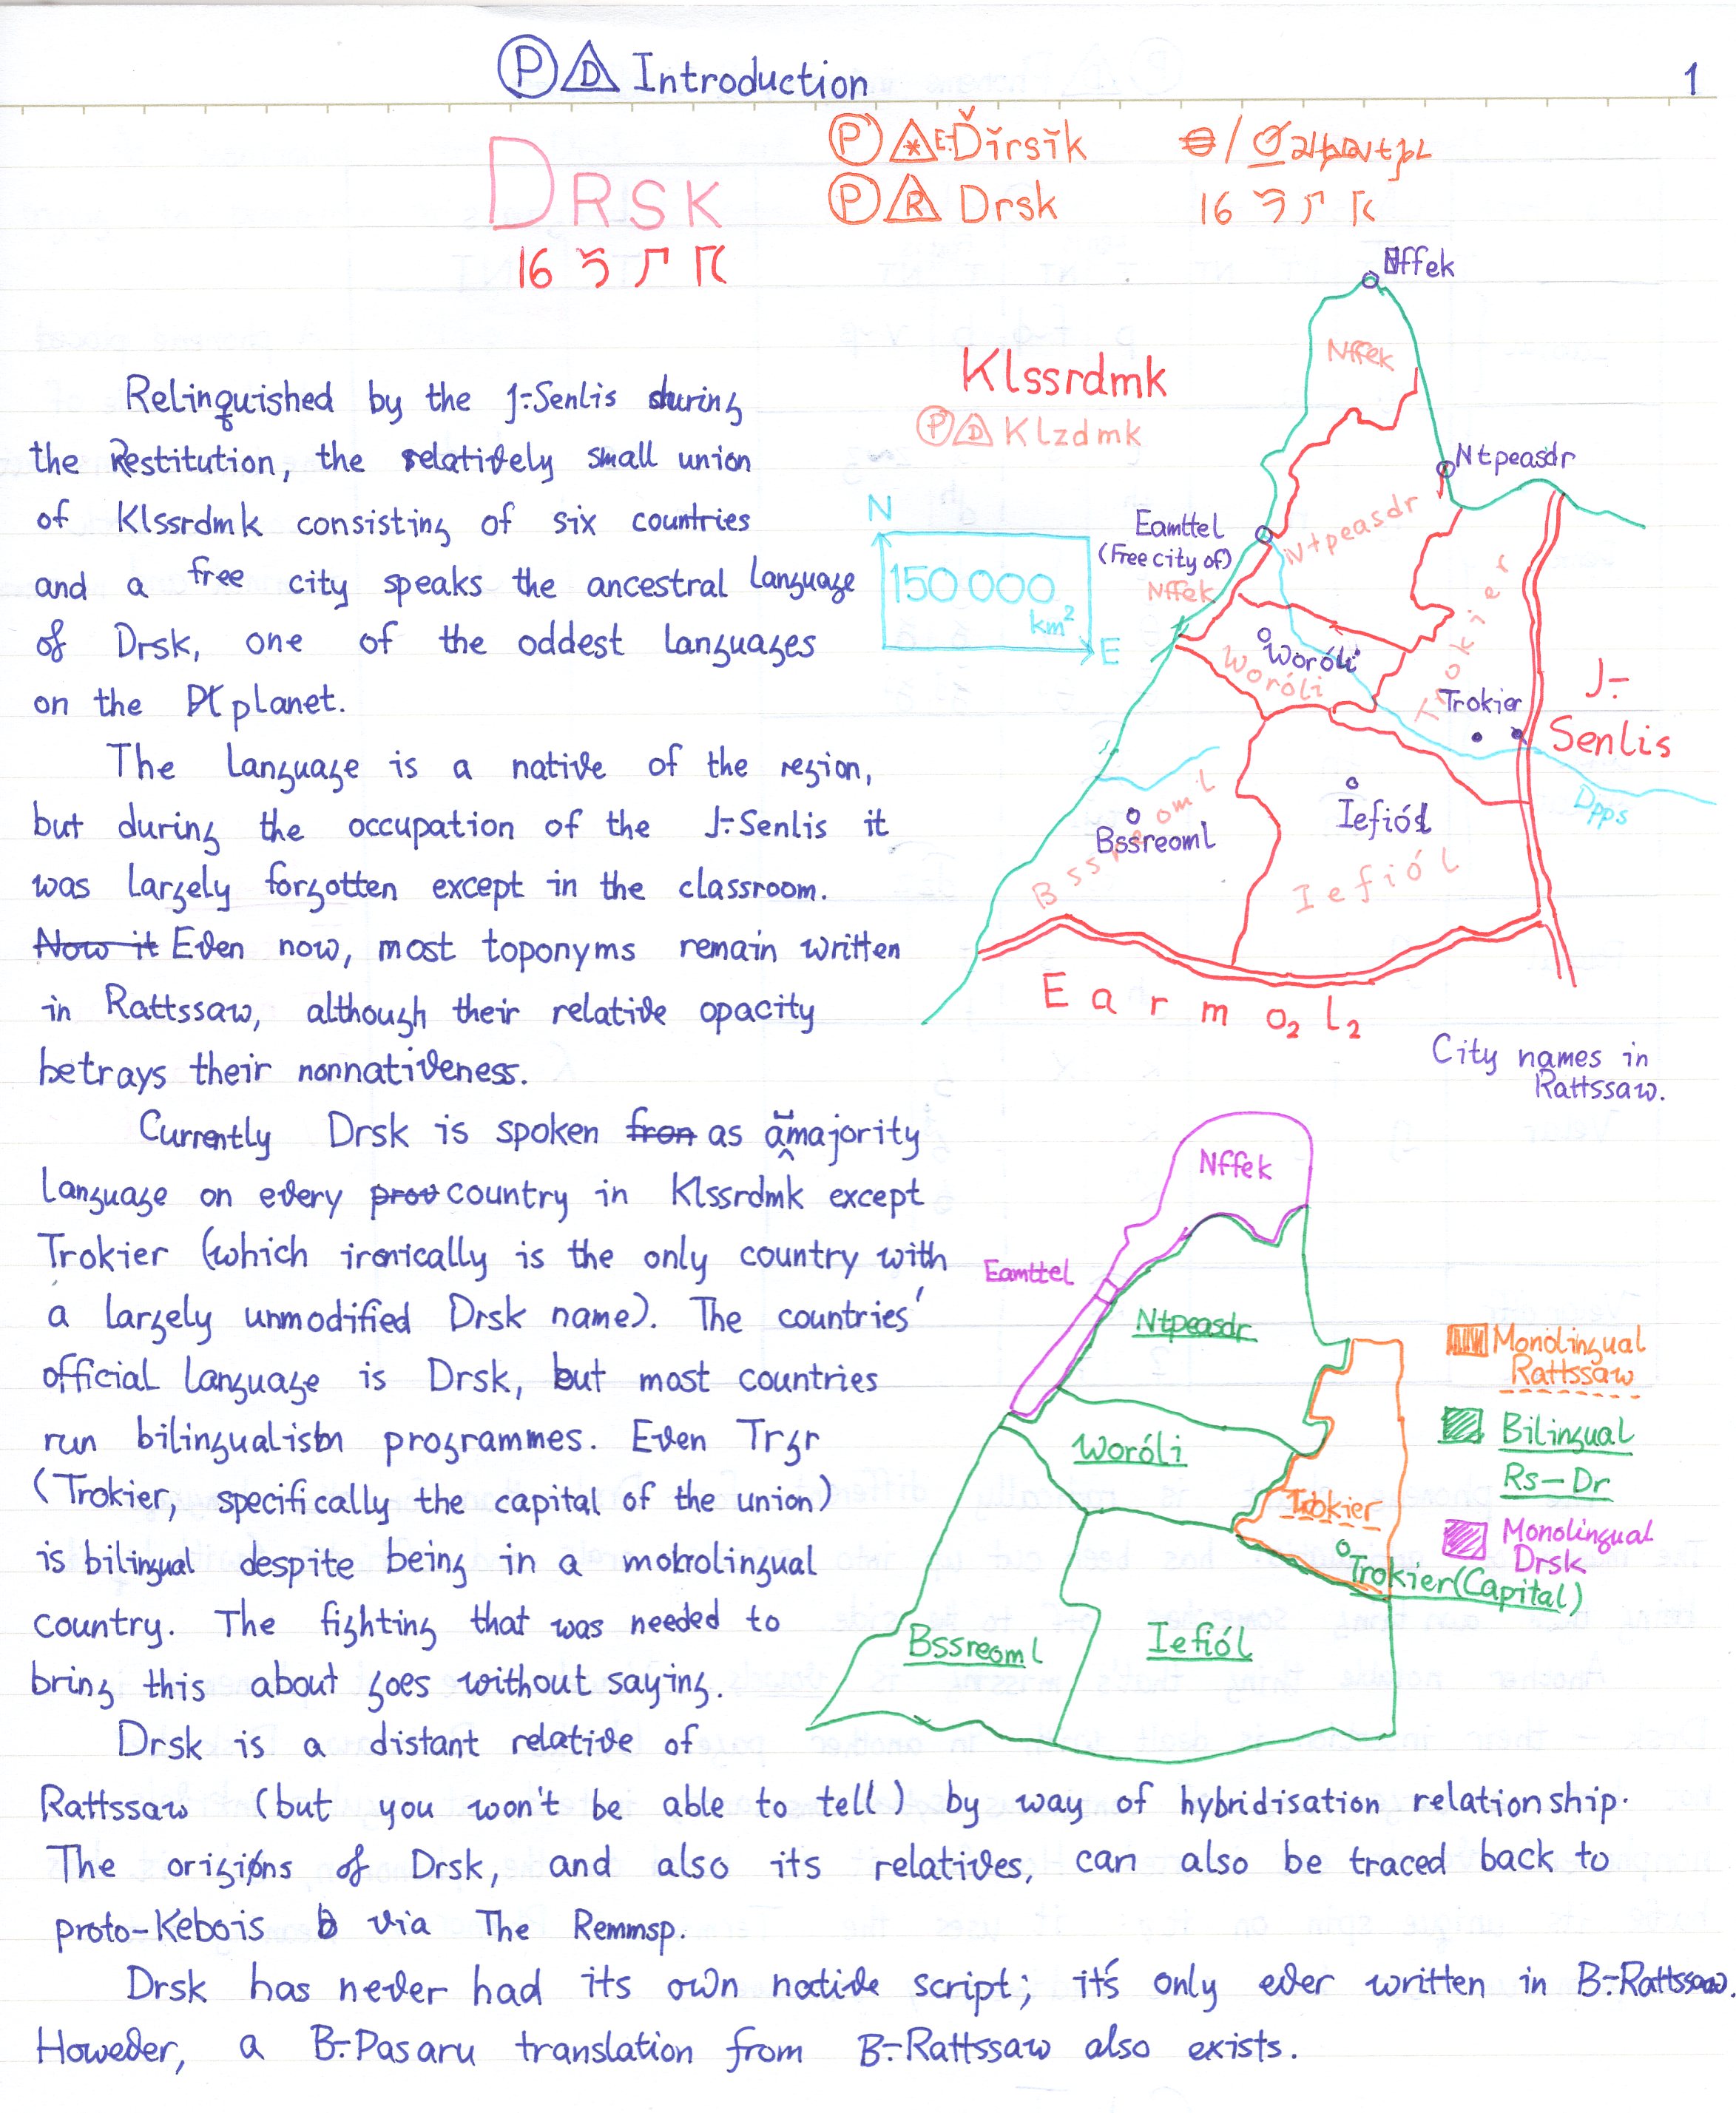 P D Introduction
1
DRSK
P * E: Ďĭrsĭk
P R Drsk
16
16
Klssrdmk
P D Klzdmk
Nffek
Nffek
Ntpeasdr
Ntpeasdr
Eamttel
(Free city of)
Nffek
N
150 000
km²
E
Woróli
Woróli
Trokier
Trokier
J:-
Senlis
Dpps
Bssreoml
Bssreoml
Iefiól
Iefiól
Earmo₂l₂
City names in
Rattssaw.
Relinquished by the J:-Senlis during
the Restitution, the relatively small union
of Klssrdmk consisting of six countries
and a free city speaks the ancestral language
of Drsk, one of the oddest languages
on the planet.
The language is a native of the region,
but during the occupation of the J:-Senlis it
was largely forgotten except in the classroom.
Now it Even now, most toponyms remain written
in Rattssaw, although their relative opacity
betrays their nonnativeness.
Currently Drsk is spoken fron as a majority
language on every prov country in Klssrdmk except
Trokier (which ironically is the only country with
a largely unmodified Drsk name). The countries'
official language is Drsk, but most countries
run bilingualism programmes. Even Trgr
(Trokier, specifically the capital of the union)
is bilingual despite being in a monolingual
country. The fighting that was needed to
bring this about goes without saying.
Drsk is a distant relative of
Rattssaw (but you won't be able to tell) by way of hybridisation relationship.
The origins of Drsk, and also its relatives, can also be traced back to
proto-Kebois via The Remmsp.
Drsk has never had its own native script; it's only ever written in B:-Rattssaw.
However, a B:-Pasaru translation from B:-Rattssaw also exists.
Nffek
Eamttel
Ntpeasdr
Woróli
Trokier
Trokier (Capital)
Bssreoml
Iefiól
Monolingual
Rattssaw
Bilingual
Rs-Dr
Monolingual
Drsk